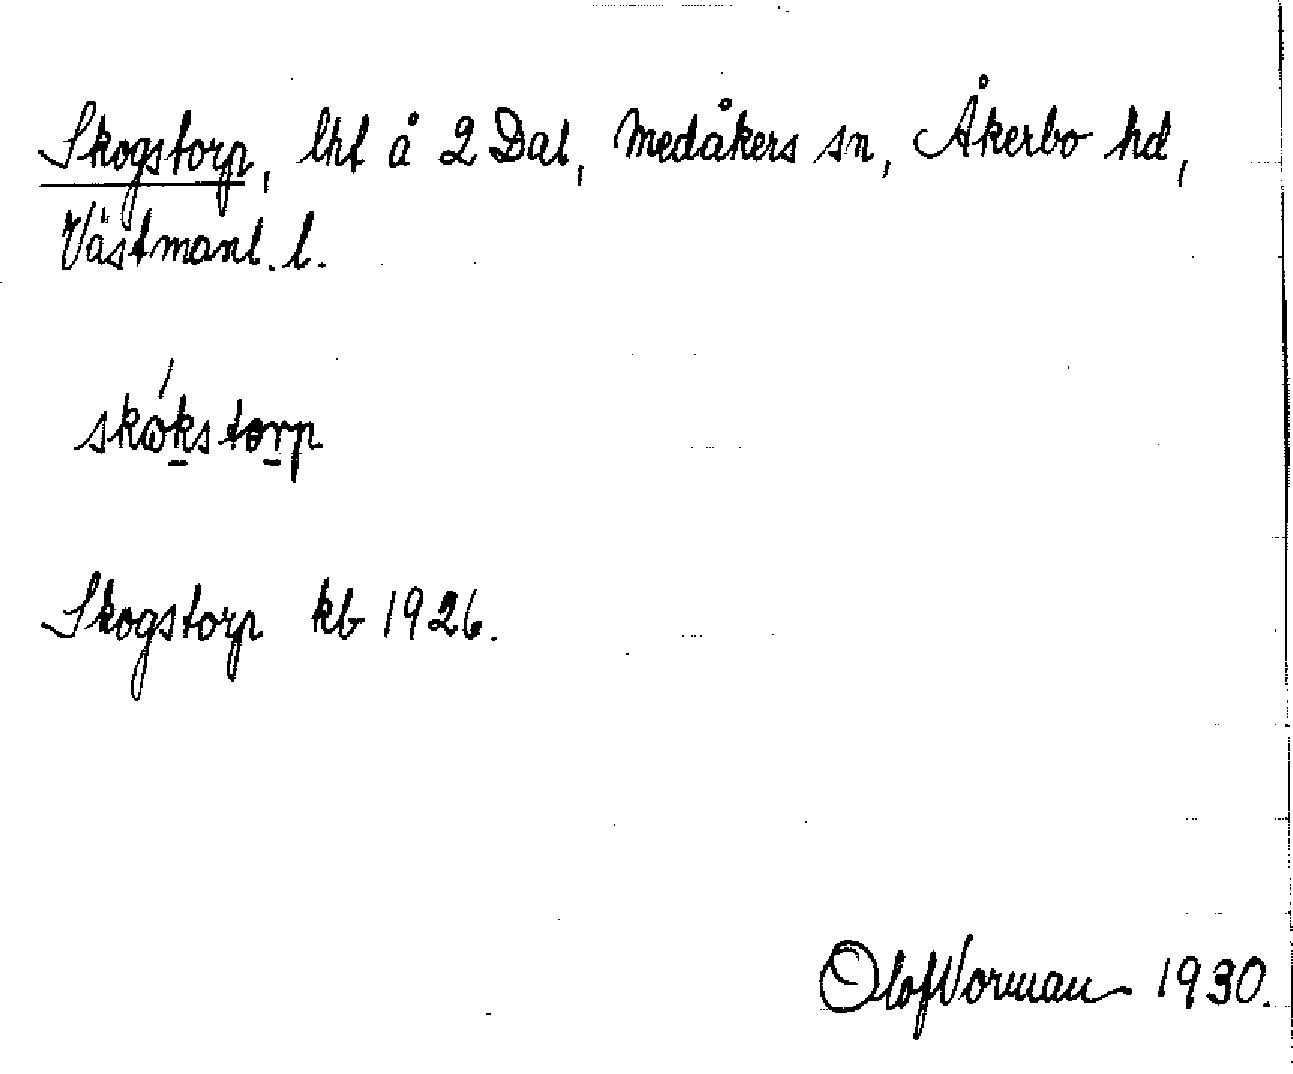 Skogstorp, lht å 2 Dal, Medåkers sn, Åkerbo hd,
Västmanl. l.
skókstorp
Skogstorp kb 1926.
Olof Norman 1930.